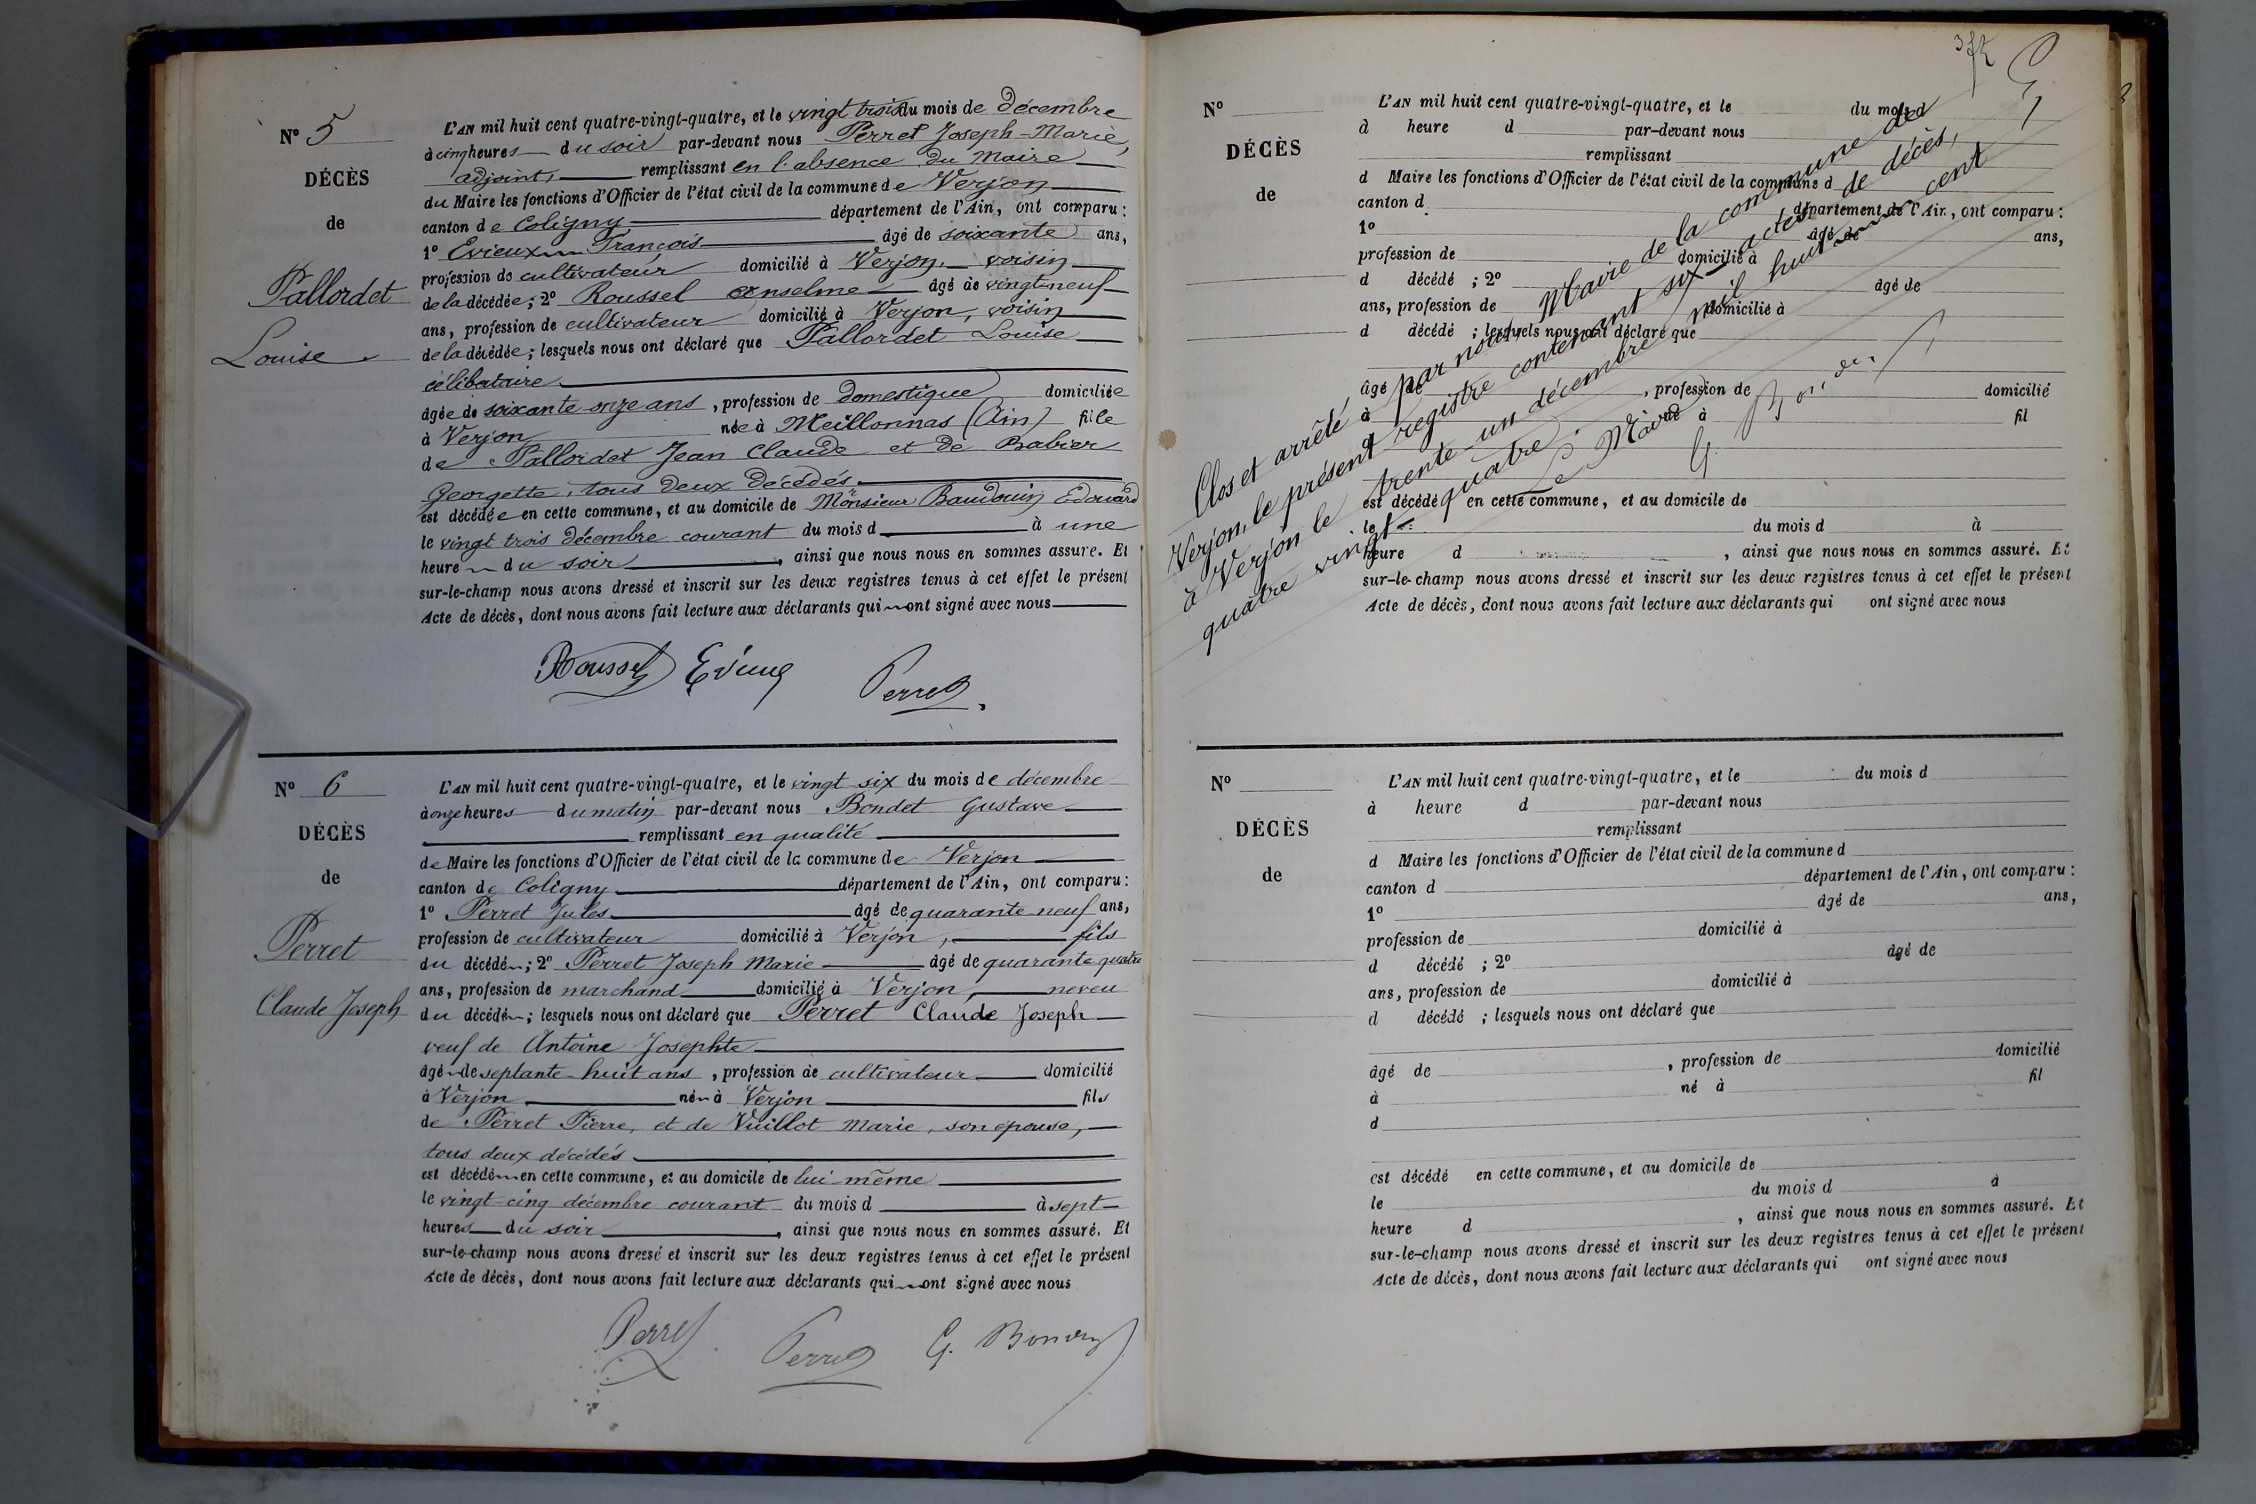 Nº 5
DÉCÈS
de
Pallordet
Louise
L'AN mil huit cent quatre-vingt-quatre, et le vingt trois du mois de décembre
à cinq heures du soir par-devant nous Perret Joseph-Marie,
adjoint, remplissant en l'absence du Maire
du Maire les fonctions d'Officier de l'état civil de la commune de Verjon
canton de Coligny département de l'Ain, ont comparu :
1º Evieux François âgé de soixante ans,
profession de cultivateur domicilié à Verjon, voisin
de la décédée ; 2º Roussel Anselme âgé de vingt-neuf
ans, profession de cultivateur domicilié à Verjon, voisin
de la décédée ; lesquels nous ont déclaré que Pallordet Louise
célibataire
âgée de soixante onze ans, profession de domestique domiciliée
à Verjon née à Meillonnas (Ain) fille
de Pallordet Jean Claude et de Babier
Georgette, tous deux décédés.
est décédée en cette commune, et au domicile de Monsieur Baudouin Edouard
le vingt trois décembre courant du mois d à une
heure du soir, ainsi que nous nous en sommes assuré. Et
sur-le-champ nous avons dressé et inscrit sur les deux registres tenus à cet effet le présent
Acte de décès, dont nous avons fait lecture aux déclarants qui ont signé avec nous
Roussel Evieux
Perret
Nº 6
DÉCÈS
de
Perret
Claude Joseph
L'AN mil huit cent quatre-vingt-quatre, et le vingt six du mois de décembre
à onze heures du matin par-devant nous Bondet Gustave
remplissant en qualité
de Maire les fonctions d'Officier de l'état civil de la commune de Verjon
canton de Coligny département de l'Ain, ont comparu :
1º Perret Jules âgé de quarante neuf ans,
profession de cultivateur domicilié à Verjon, fils
du décédé ; 2º Perret Joseph Marie âgé de quarante quatre
ans, profession de marchand domicilié à Verjon, neveu
du décédé ; lesquels nous ont déclaré que Perret Claude Joseph
veuf de Antoine Josephte
âgé de septante-huit ans, profession de cultivateur domicilié
à Verjon né à Verjon fils
de Perret Pierre, et de Vuillot Marie, son epouse,
tous deux décédés
est décédé en cette commune, et au domicile de lui-même
le vingt-cinq décembre courant du mois d à sept
heures du soir, ainsi que nous nous en sommes assuré. Et
sur-le-champ nous avons dressé et inscrit sur les deux registres tenus à cet effet le présent
Acte de décès, dont nous avons fait lecture aux déclarants qui ont signé avec nous
Perret
Perret
G. Bondet
Nº
DÉCÈS
de
L'AN mil huit cent quatre-vingt-quatre, et le du mois d
à heure d par-devant nous
remplissant
d Maire les fonctions d'Officier de l'état civil de la commune d
canton d département de l'Ain, ont comparu :
1º âgé de ans,
profession de domicilié à
d décédé ; 2º âgé de
ans, profession de domicilié à
d décédé ; lesquels nous ont déclaré que
âgé de, profession de domicilié
à né à fil
d
est décédé en cette commune, et au domicile de
le du mois d à
heure d, ainsi que nous nous en sommes assuré. Et
sur-le-champ nous avons dressé et inscrit sur les deux registres tenus à cet effet le présent
Acte de décès, dont nous avons fait lecture aux déclarants qui ont signé avec nous
Clos et arrêté par nous, Maire de la commune de
Verjon, le présent registre contenant six actes de décès,
à Verjon le trente-un décembre mil huit cent
quatre vingt quatre.
Le Maire
G. Bondet
Nº
DÉCÈS
de
L'AN mil huit cent quatre-vingt-quatre, et le du mois d
à heure d par-devant nous
remplissant
d Maire les fonctions d'Officier de l'état civil de la commune d
canton d département de l'Ain, ont comparu :
1º âgé de ans,
profession de domicilié à
d décédé ; 2º âgé de
ans, profession de domicilié à
d décédé ; lesquels nous ont déclaré que
âgé de, profession de domicilié
à né à fil
d
est décédé en cette commune, et au domicile de
le du mois d à
heure d, ainsi que nous nous en sommes assuré. Et
sur-le-champ nous avons dressé et inscrit sur les deux registres tenus à cet effet le présent
Acte de décès, dont nous avons fait lecture aux déclarants qui ont signé avec nous